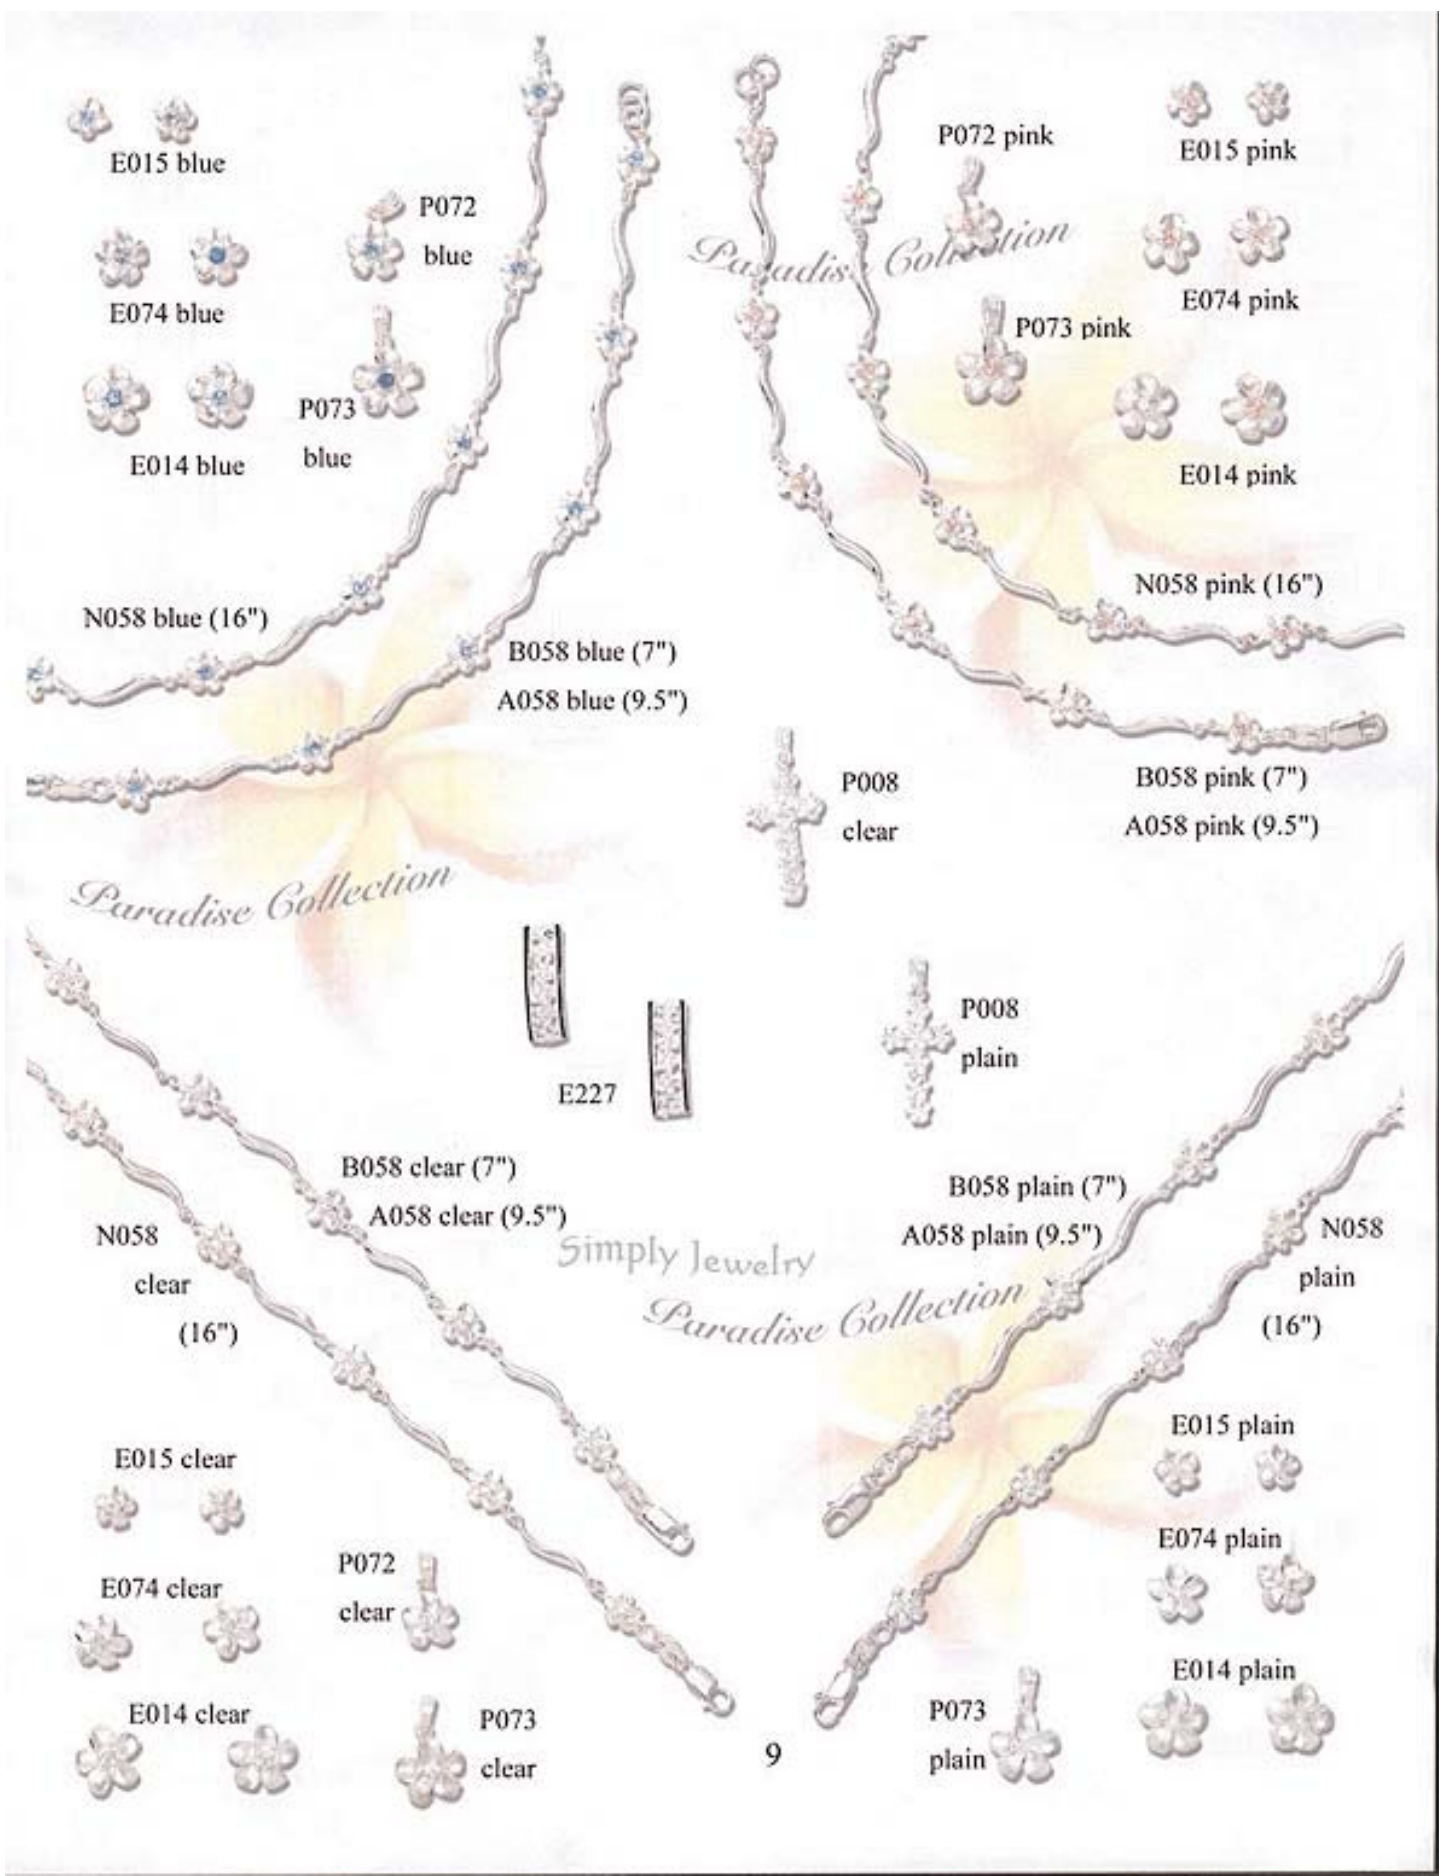 E015 blue
P072
blue
E074 blue
P073
blue
E014 blue
N058 blue (16")
B058 blue (7")
A058 blue (9.5")
Paradise Collection
P072 pink
E015 pink
Paradise Collection
E074 pink
P073 pink
E014 pink
N058 pink (16")
B058 pink (7")
A058 pink (9.5")
P008
clear
E227
P008
plain
B058 clear (7")
A058 clear (9.5")
N058
clear
(16")
Simply Jewelry
Paradise Collection
B058 plain (7")
A058 plain (9.5")
N058
plain
(16")
E015 clear
E074 clear
P072
clear
E014 clear
P073
clear
E015 plain
E074 plain
E014 plain
P073
plain
9